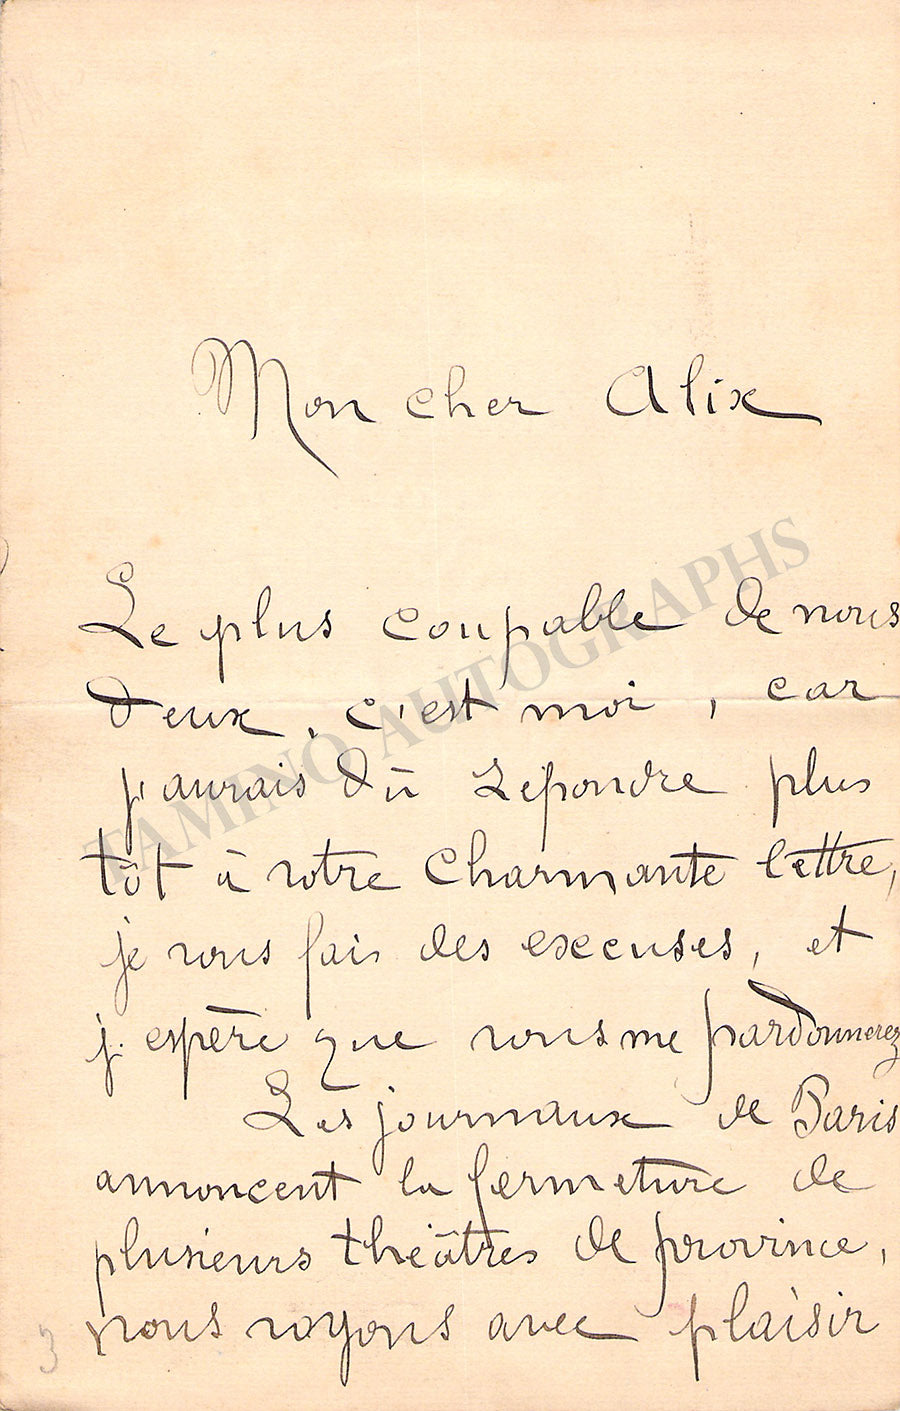 Mon cher Alix
Le plus coupable de nous
deux, c'est moi, car
j'aurais dû répondre plus
tôt à votre charmante lettre,
je vous fais des excuses, et
j'espère que vous me pardonnerez
Les journaux de Paris
annoncent la fermeture de
plusieurs théâtres de province,
nous voyons avec plaisir
3
TAMINO AUTOGRAPHS